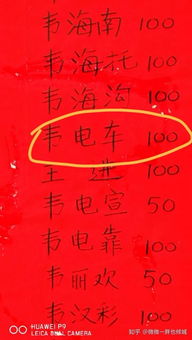 韦海南 100
韦海托 100
韦海沟 100
韦电车 100
王 进 100
韦电宣 50
韦电靠 100
韦丽欢 50
韦汉彩 100
HUAWEI P9
LEICA DUAL CAMERA
知乎 @微微一胖也倾城